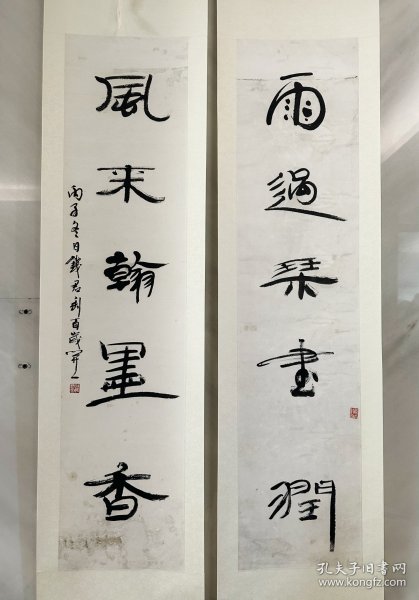 雨過琴書潤
風来翰墨香
丙子冬日錢君匋百歲開一
孔夫子旧书网
book.kongfz.com